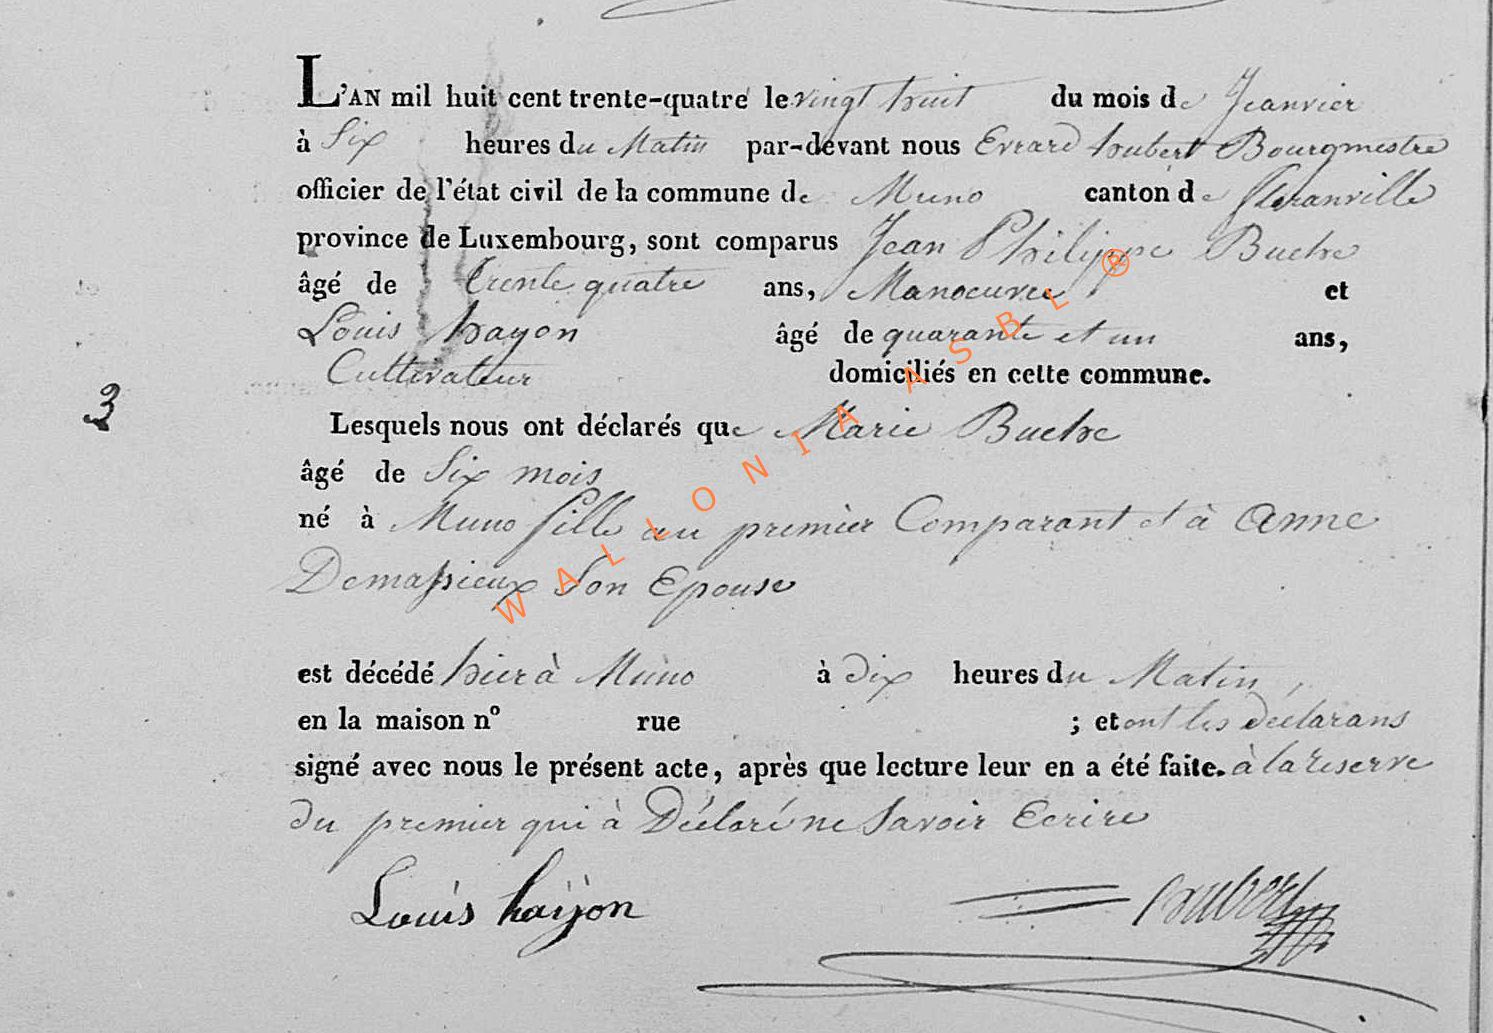 L'AN mil huit cent trente-quatre le vingt huit du mois de Jeanvier
à Six heures du Matin par-devant nous Evrard hubert Bourgmestre
officier de l'état civil de la commune de Muno canton de floranville
province de Luxembourg, sont comparus Jean Philippe Buche
âgé de trente quatre ans, Manoeuvre et
Louis hayon âgé de quarante et un ans,
Cultivateur domiciliés en cette commune.
3
Lesquels nous ont déclarés que Marie Buche
âgé de Six mois
né à Muno fille au premier Comparant et à Anne
Demassieux Son Epouse
est décédé hier à Muno à dix heures du Matin,
en la maison n° rue ; et ont les déclarans
signé avec nous le présent acte, après que lecture leur en a été faite. à la reserve
du premier qui à Déclaré ne Savoir Ecrire
Louis haÿon hubert
WALLONIA ASBL ®